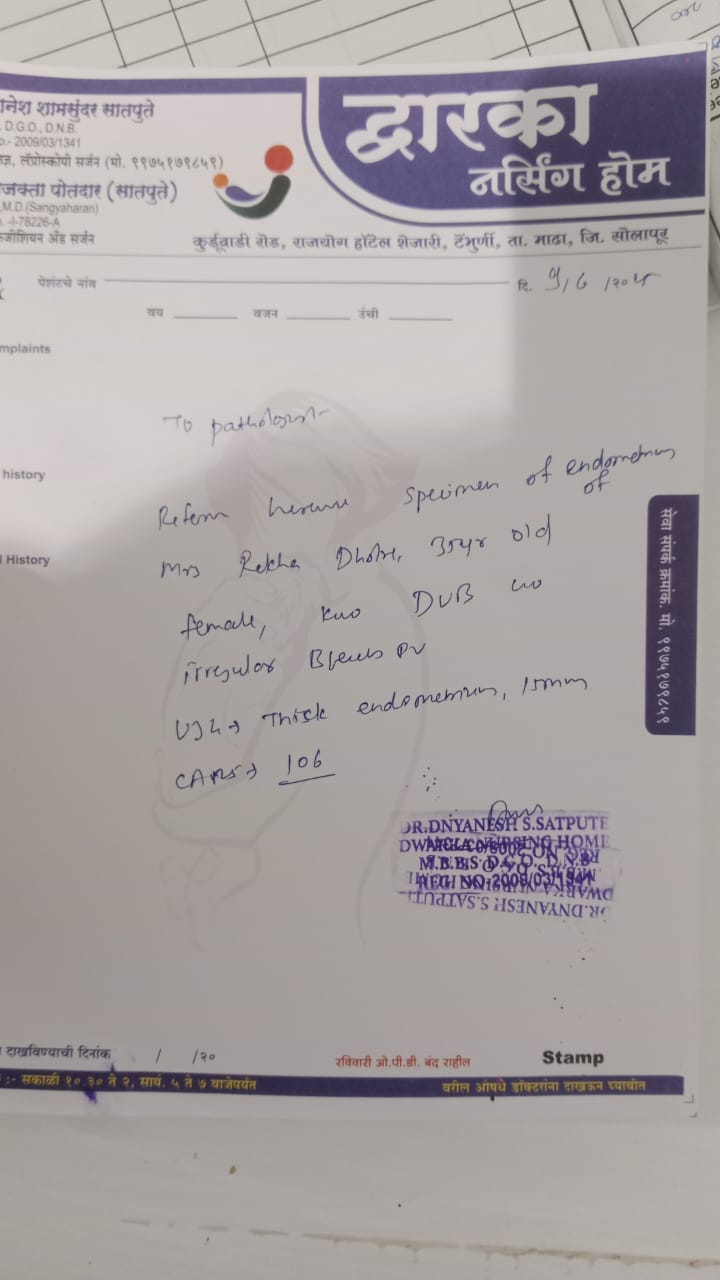 नेश शामसुंदर सातपुते
D.G.O., D.N.B.
- 2009/03/1341
लॅप्रोस्कोपी सर्जन (मो. ९१७५१७१८५१)
जक्ता पोतदार (सातपुते)
M.D.(Sangyaharan)
-I-78226-A
जीशियन अँड सर्जन
द्वारका
नर्सिंग होम
कुर्डूवाडी रोड, राजयोग हॉटेल शेजारी, टेंभुर्णी, ता. माढा, जि. सोलापूर
पेशंटचे नांव
दि.
वय वजन उंची
mplaints
To pathologist-
history
Specimen of endometrium of
History
Mrs Rekha 35yr old
female, DUB
irregular Bleeds PV
USG→ Thick endometrium, 15mm
106
सेवा संपर्क क्रमांक. मो.
DR.DNYANESH S.SATPUTE
DWARKA NURSING HOME
M.B.B.S. D.G.O., D.N.B
REG NO.2009/03/1341
DWARKA
DR.DNYANESH S.SATPUTE
दाखविण्याची दिनांक / /२०
रविवारी ओ.पी.डी. बंद राहील
Stamp
:- सकाळी १०.३० ते २, सायं. ५ ते ७ वाजेपर्यंत
वरील औषधे डॉक्टरांना दाखऊन घ्यावीत